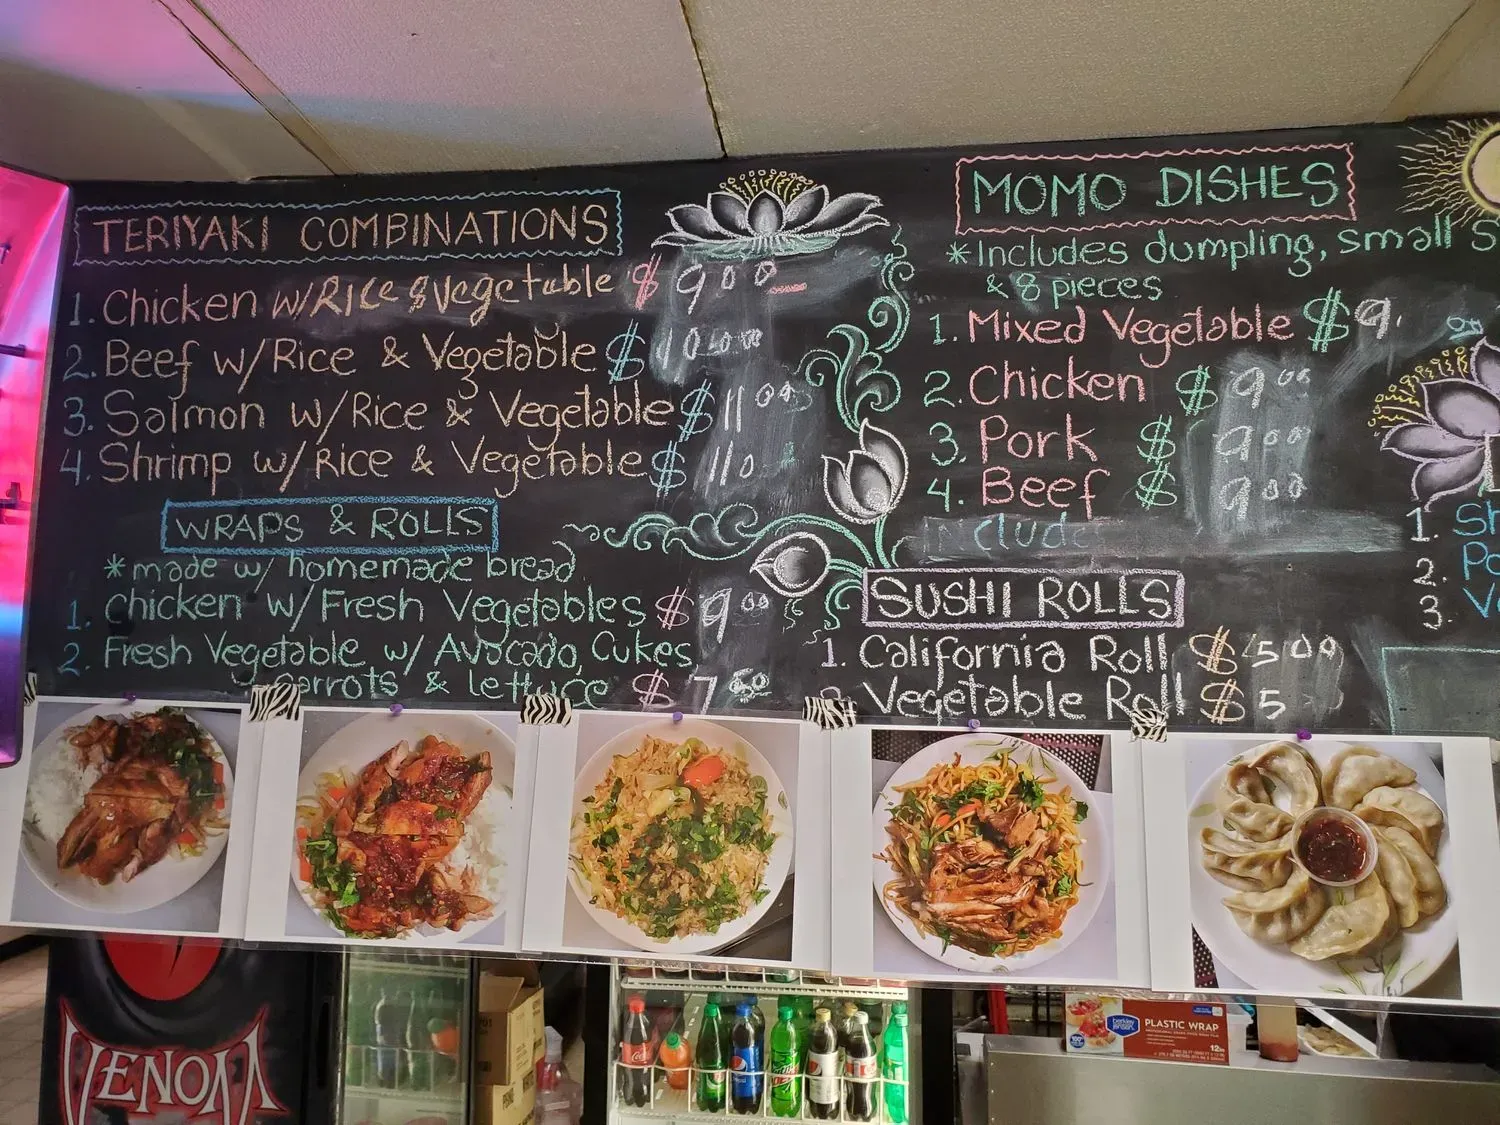 TERIYAKI COMBINATIONS
1. Chicken w/Rice & Vegetable $9 00
2. Beef w/Rice & Vegetable $10.00
3. Salmon w/Rice & Vegetable $11 00
4. Shrimp w/Rice & Vegetable $110
WRAPS & ROLLS
*made w/ homemade bread
1. Chicken w/Fresh Vegetables $9 00
2. Fresh Vegetable w/ Avocado, Cukes,
carrots & lettuce $7 50
MOMO DISHES
*Includes dumpling, small S
& 8 pieces
1. Mixed Vegetable $9.
2. Chicken $9 00
3. Pork $9 00
4. Beef $9 00
include
SUSHI ROLLS
1. California Roll $5 00
Vegetable Roll $5
1. Sh
2. Po
3. Ve
VENOM
Coca-Cola
pepsi
PLASTIC WRAP